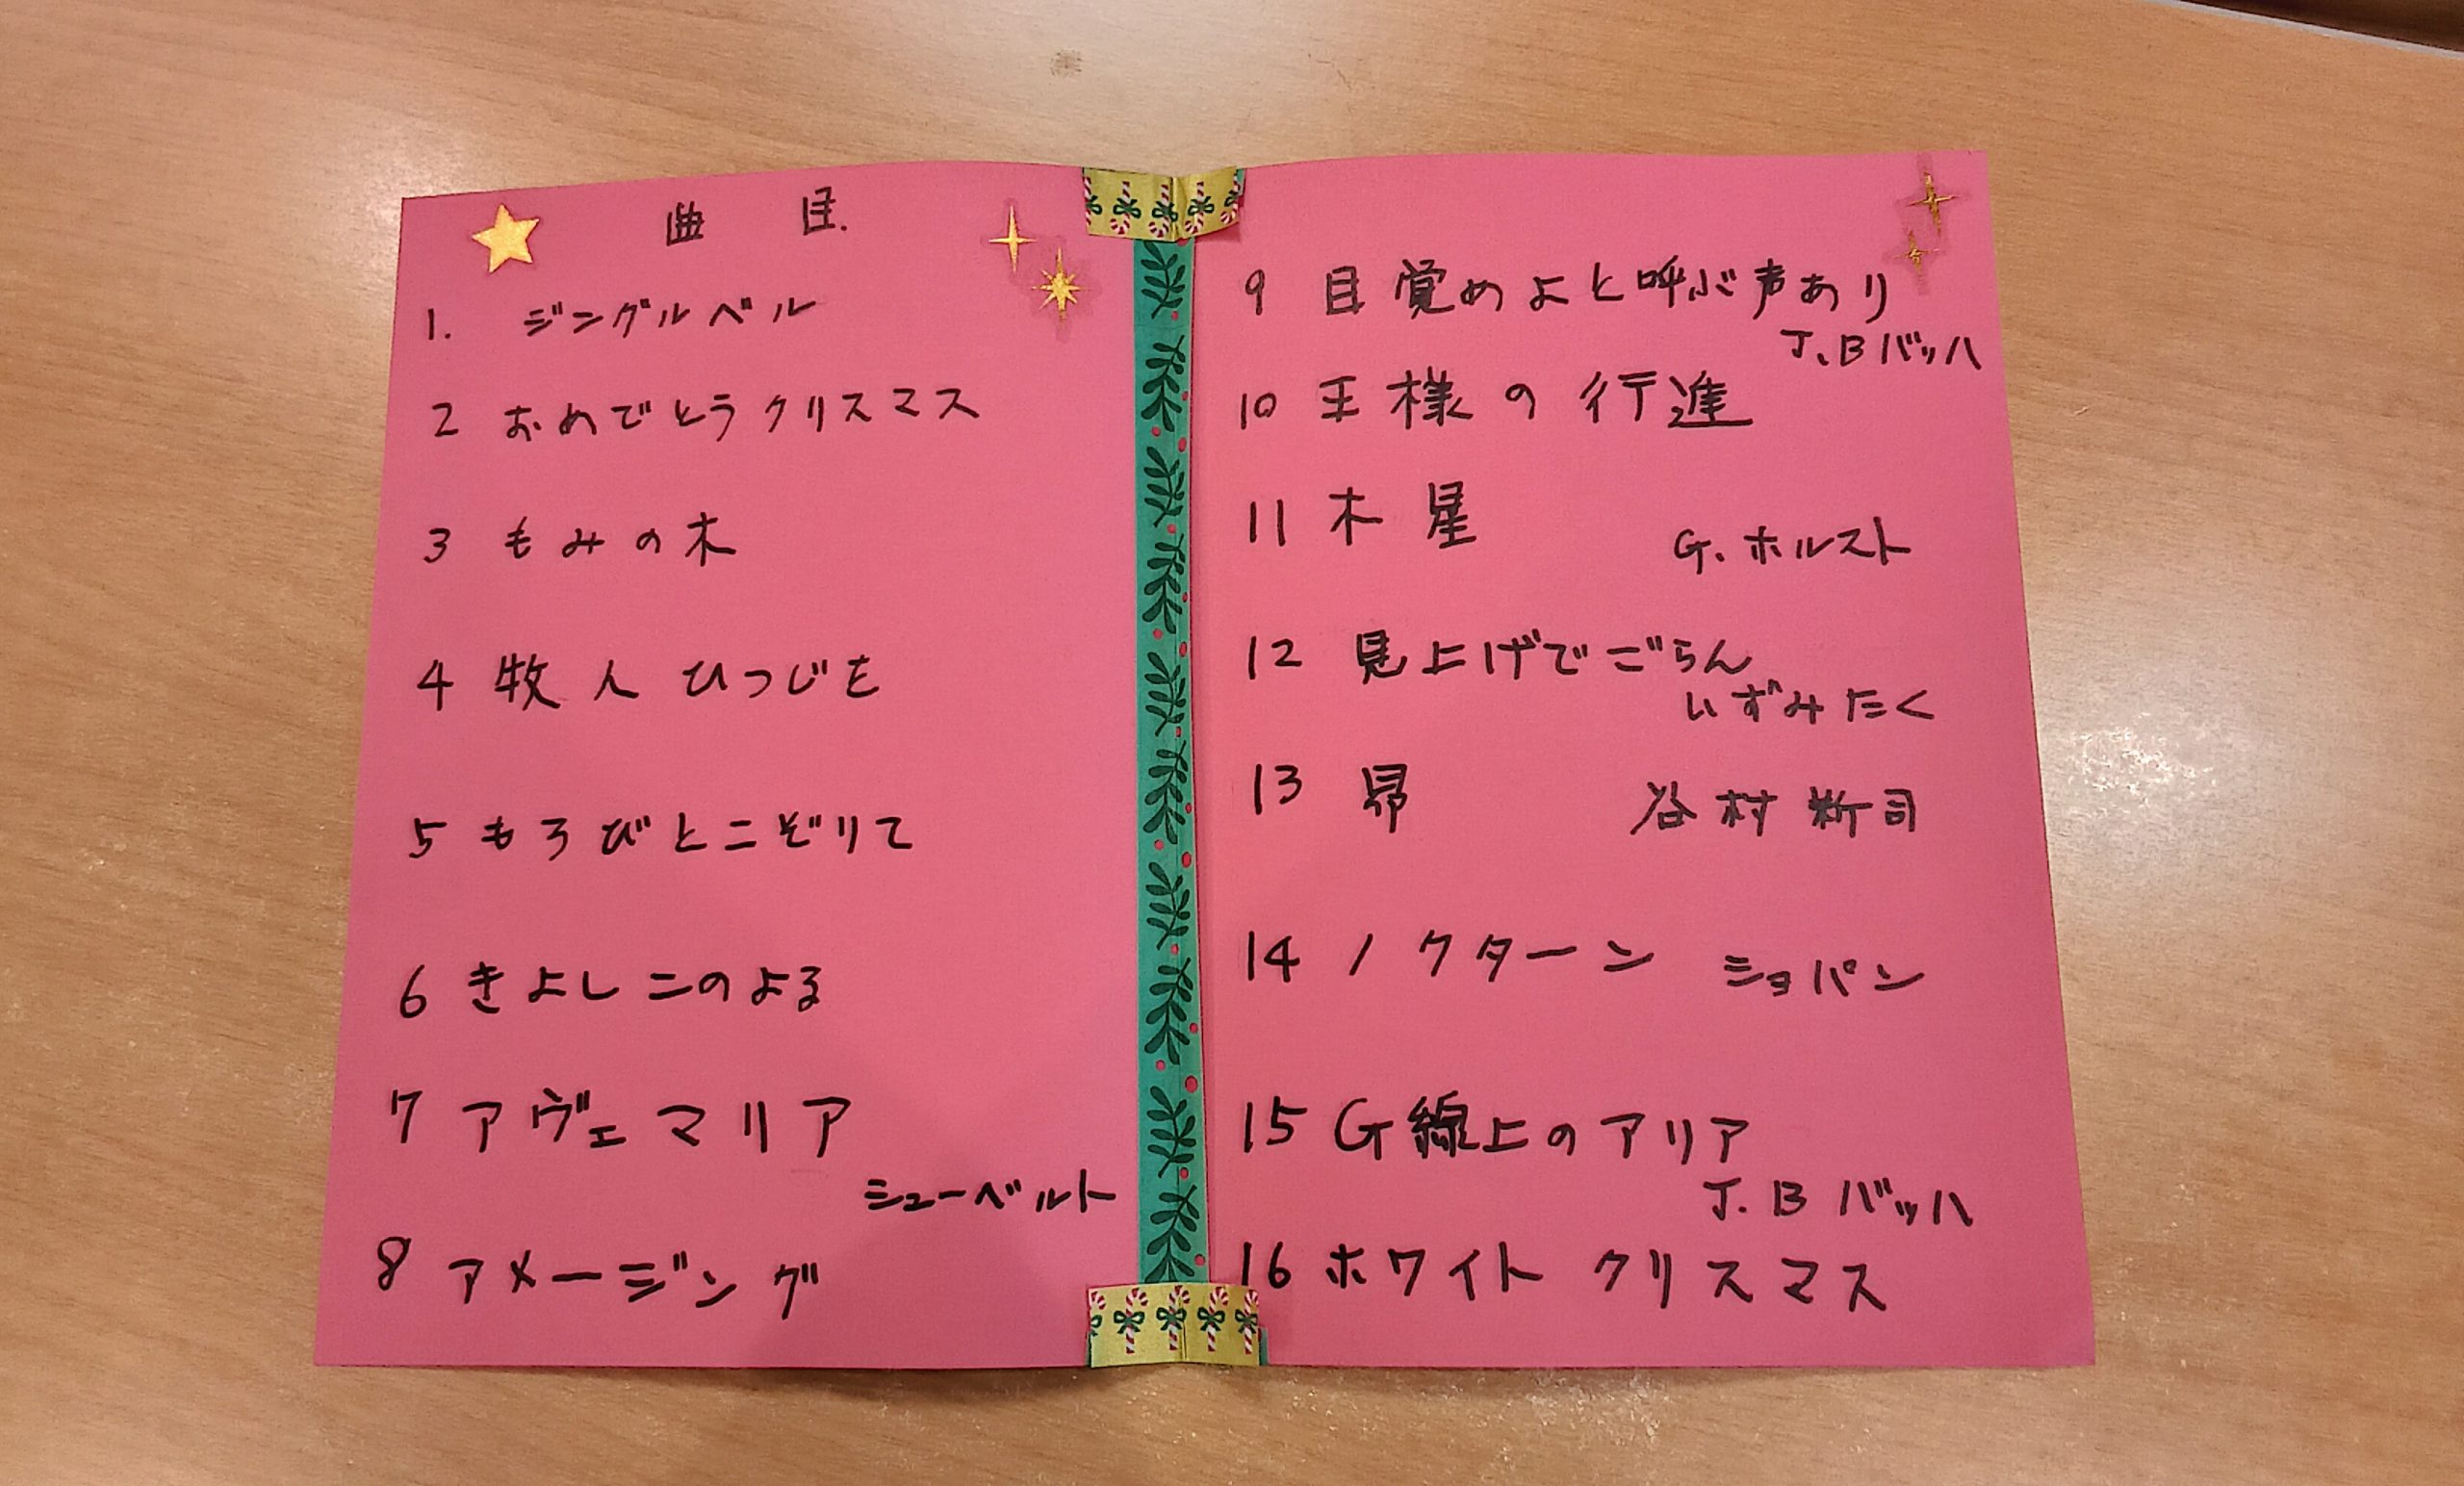 曲 目.
1. ジングルベル
2 おめでとうクリスマス
3 もみの木
4 牧人ひつじを
5 もろびとこぞりて
6 きよしこのよる
7 アヴェマリア
シューベルト
8 アメージング
9 目覚めよと呼ぶ声あり
J.Bバッハ
10 王様の行進
11 木星
G.ホルスト
12 見上げでごらん
いずみたく
13 昴
谷村新司
14 ノクターン ショパン
15 G線上のアリア
J.Bバッハ
16 ホワイト クリスマス